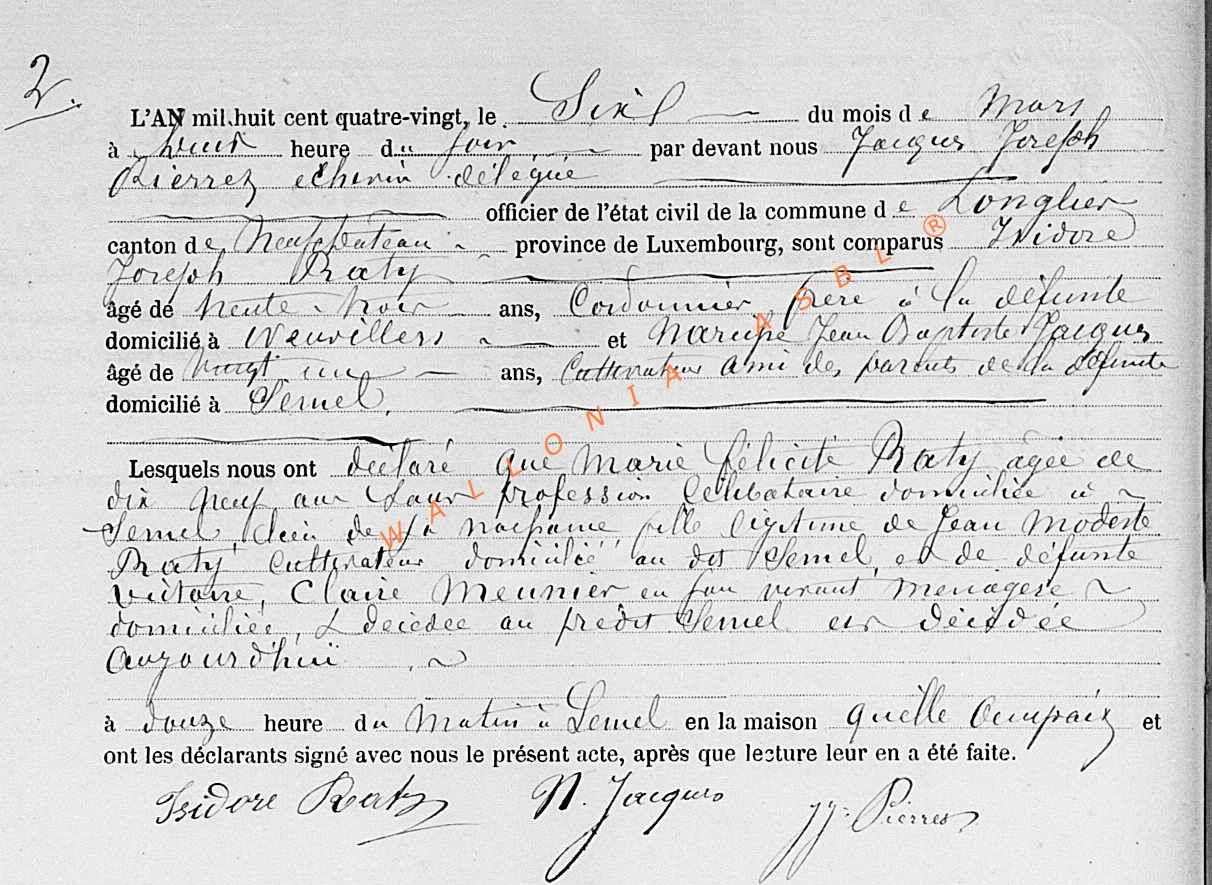 2.
L'AN mil huit cent quatre-vingt, le Six du mois de Mars
à huit heure du soir par devant nous Jacques Joseph
Pierrez echevin délégué
officier de l'état civil de la commune de Longlier
canton de Neufchateau province de Luxembourg, sont comparus Isidore
Joseph Raty
âgé de trente trois ans, Cordonnier frere à la défunte
domicilié à Neuvillers et Narcisse Jean Baptiste Jacques
âgé de vingt un ans, Cultivateur ami des parents de la défunte
domicilié à Semel.
Lesquels nous ont déclaré que Marie félicité Raty agée de
dix neuf ans sans profession Célibataire domiciliée à
Semel, lieu de sa naissance, fille légitime de Jean Modeste
Raty Cultivateur domicilié au dit Semel, et de défunte
Victoire, Claire Meunier en son vivant menagere
domiciliée, & décédée au prédit Semel est décédée
Aujourd'hui
à douze heure du Matin à Semel en la maison quelle occupait et
ont les déclarants signé avec nous le présent acte, après que lecture leur en a été faite.
Isidore Raty N. Jacques JJ. Pierres
WALLONIA ASBL ®